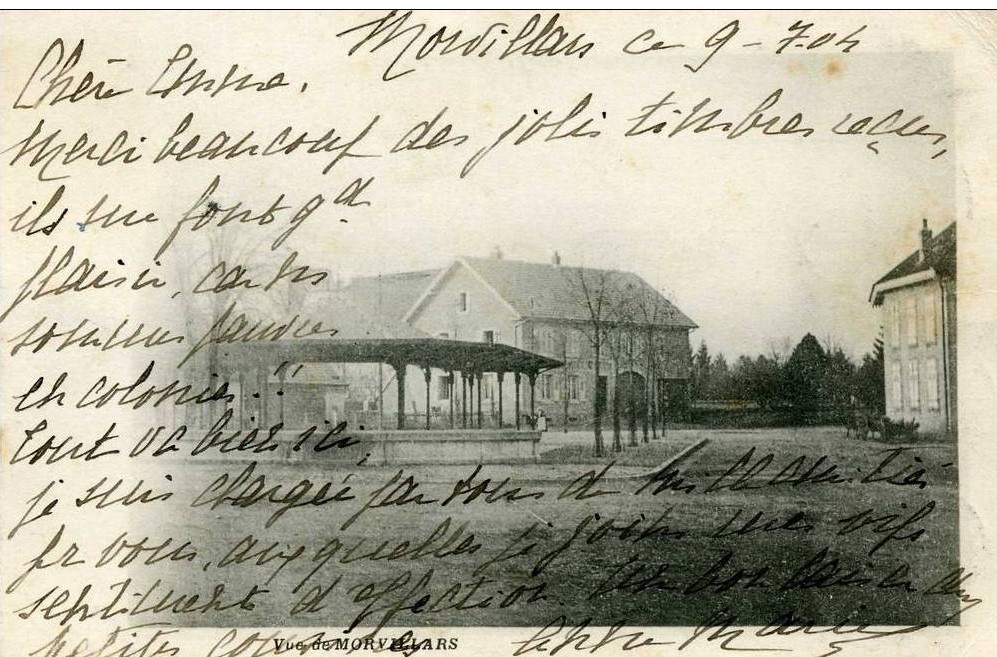 Morvillars ce 9-7-04
Chère Emma,
Merci beaucoup des jolis timbres reçus,
ils me font gd
plaisir, car ns
sommes pauvres
en colonies!!
Tout va bien ici,
je suis chargée par tous de mille amitiés
pr vous, auxquelles je joins mes vifs
sentiments d'affection. Un bon baiser aux
petites
Vue de MORVILLARS